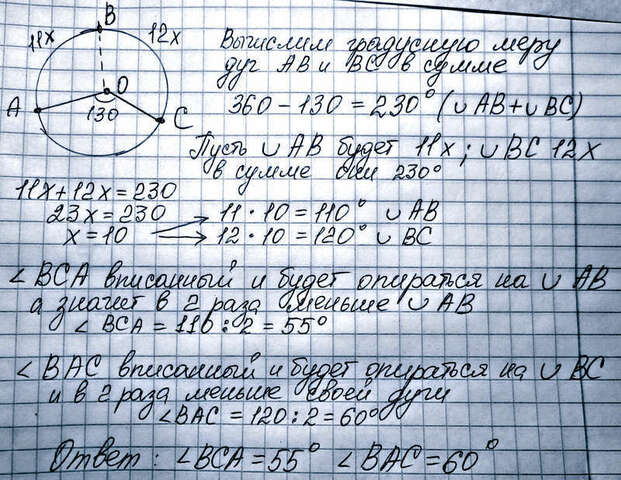 B
11x
12x
O
A
130
C
Вычислим градусную меру
дуг AB и BC в сумме
360 - 130 = 230° (∪ AB + ∪ BC)
Пусть ∪ AB будет 11x ; ∪ BC 12x
в сумме они 230°
11x + 12x = 230
23x = 230
x = 10
11 · 10 = 110° ∪ AB
12 · 10 = 120° ∪ BC
∠ BCA вписанный и будет опираться на ∪ AB
а значит в 2 раза меньше ∪ AB
∠ BCA = 110 : 2 = 55°
∠ BAC вписанный и будет опираться на ∪ BC
и в 2 раза меньше своей дуги
∠BAC = 120 : 2 = 60°
Ответ : ∠BCA = 55° ∠BAC = 60°